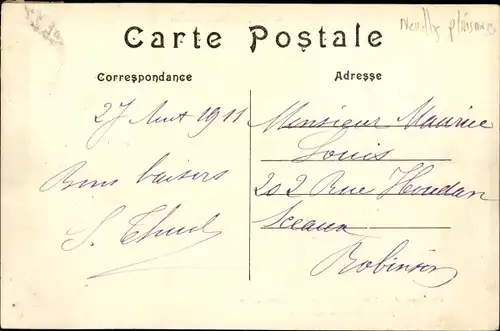 Neuilly plaisance
Carte Postale
Correspondance
Adresse
27 Aout 1911
Bons baisers
Monsieur Maurice
Louis
202 Rue Houdan
Sceaux
Robinson